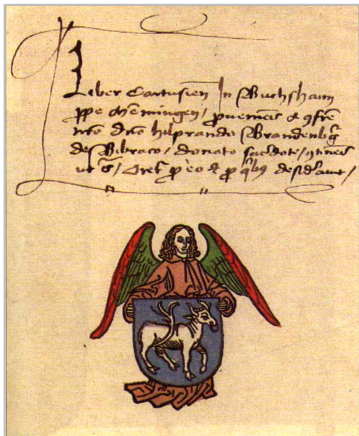 Liber Cartusien̄ In Buchshaim
ꝓpe Memingen / ꝓueniēs a ꝯfr̄e
nr̄o dn̄o hilprando Brandenbg̃
de Bibraco / donato sacerdote / ꝯtinēs
ut ĩ / Oret̃ ꝓ eo et ꝓ qͥbꝰ desid̾auit /